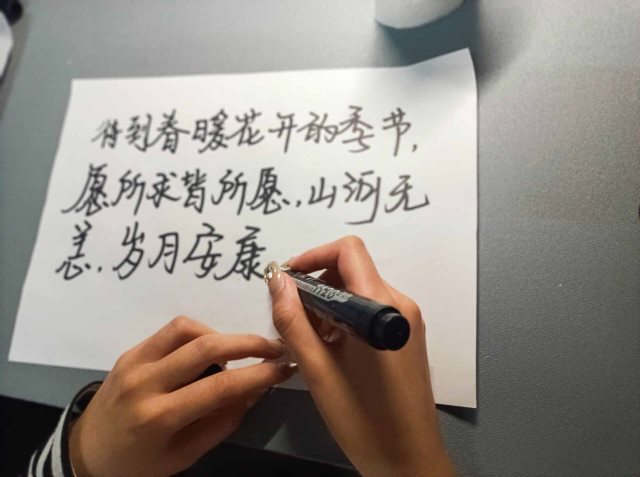 待到春暖花开的季节,
愿所求皆所愿,山河无
恙,岁月安康